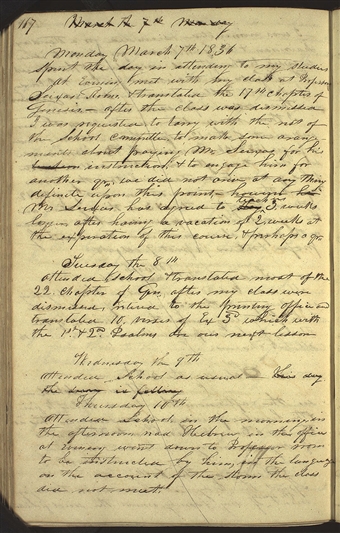 167 March the 7th Monday
Monday March 7th 1836
Spent the day in attending to my studies
at evening met with my class at Professor
Seixas Room, & translated the 17th chapter of
Genesis - after the class was dismissed
I was requested to tarry with the rest of
the School committee to make some arange
ments about paying Mr Seixas for his
instruction, & to engage him for
another Qr, we did not arive at any thing
definite upon this point - however
Mr. Seixas has agreed to teach 3 weeks
longer after having a vacation of 2 weeks at
the expiration of this course, & perhaps a qr.
Tuesday the 8th
Attended school & translated most of the
22. chapter of Gen, after my class were
dismissed, retired to the printing office and
translated 10, verses of Ex 3d which with
the 1st & 2d. Psalms are our next lesson
Wednesday the 9th
Attended School as usual This day
the snow is falling
Thursday 10th
Attended School in the morning, in
the afternoon read Hebrew in the office
at evening went down to Professor room
to be instructed by him, in the language
on the account of the storm the class
did not meet.